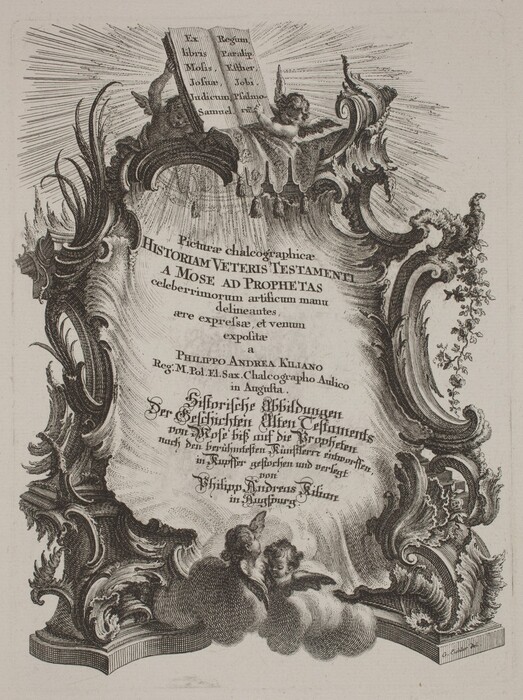 Ex
libris
Mosis,
Josuæ,
Judicum,
Samuel,
Regum
Paralip.
Esther,
Jobi,
Psalmo.
Picturæ chalcographicæ
HISTORIAM VETERIS TESTAMENTI
A MOSE AD PROPHETAS
celeberrimorum artificum manu
delineantes,
ære expressæ, et venum
expositæ
a
PHILIPPO ANDREA KILIANO
Reg. M. Pol. El. Sax. Chalcographo Aulico
in Augusta.
Historische Abbildungen
Der Geschichten Alten Testaments
von Mose biß auf die Propheten
nach den berühmtesten Künstlern entworffen,
in Kupffer gestochen und verlegt
von
Philipp Andreas Kilian
in Augspurg